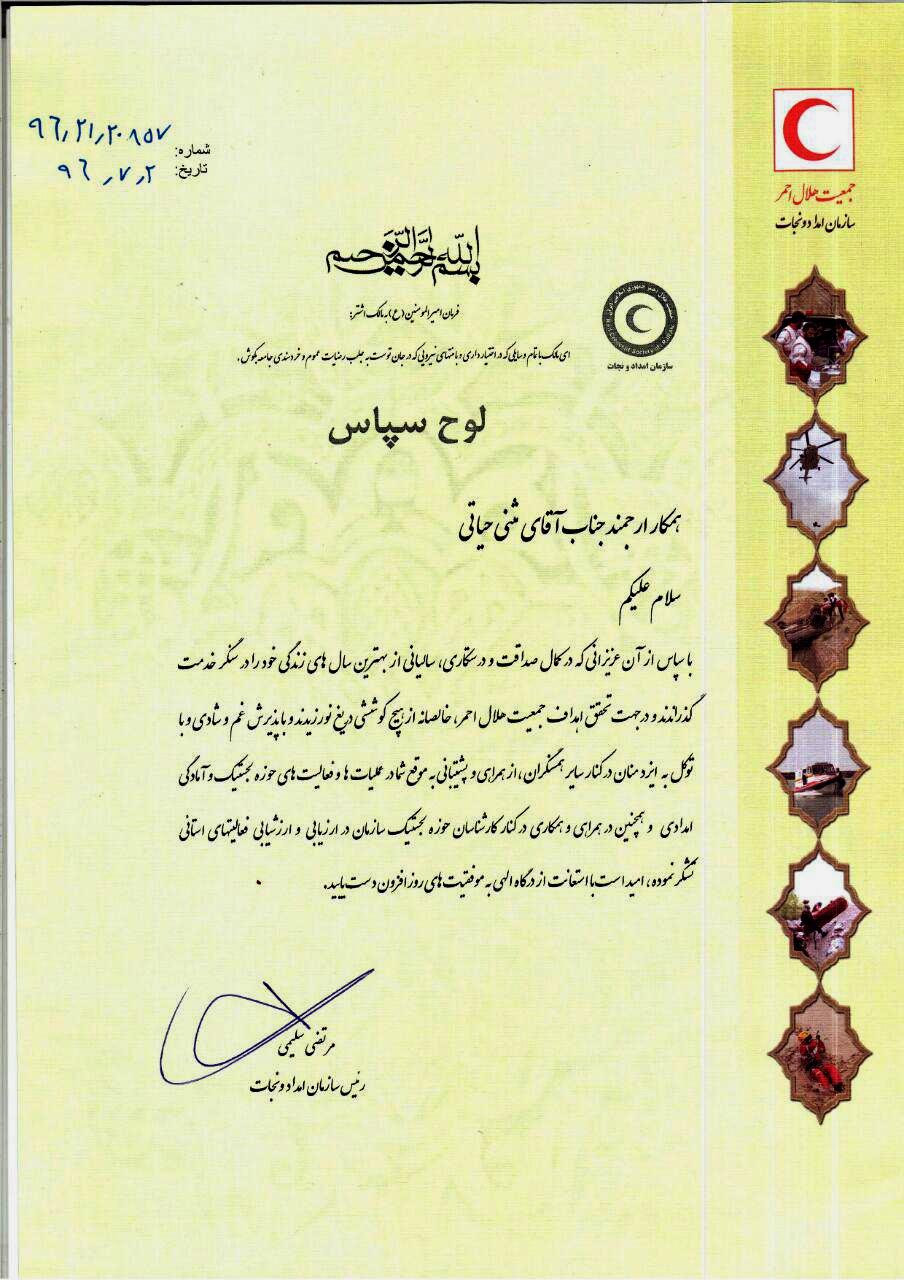 جمعیت هلال احمر
سازمان امداد و نجات
شماره: ۹۶٫۲۱٫۲۰۸۵۷
تاریخ: ۹۶٫۷٫۲
بسم الله الرحمن الرحیم
فرمان امیرالمومنین (ع) به مالک اشتر:
ای مالک با تمام وسایلی که در اختیار داری و با منتهای نیرویی که در جان توست به جلب رضایت عموم و خرسندی جامعه بکوش.
جمعیت هلال احمر جمهوری اسلامی ایران
سازمان امداد و نجات
لوح سپاس
همکار ارجمند جناب آقای مثنی حیاتی
سلام علیکم
با سپاس از آن عزیزانی که در کمال صداقت و درستکاری، سالیانی از بهترین سال های زندگی خود را در سنگر خدمت
گذراندند و در جهت تحقق اهداف جمعیت هلال احمر، خالصانه از هیچ کوششی دریغ نورزیدند و با پذیرش غم و شادی و با
توکل به ایزد منان در کنار سایر همسنگران، از همراهی و پشتیبانی به موقع شما در عملیات ها و فعالیت های حوزه لجستیک و آمادگی
امدادی و همچنین در همراهی و همکاری در کنار کارشناسان حوزه لجستیک سازمان در ارزیابی و ارزشیابی فعالیتهای استانی
تشکر نموده، امید است با استعانت از درگاه الهی به موفقیت های روزافزون دست یابید.
مرتضی سلیمی
رئیس سازمان امداد و نجات